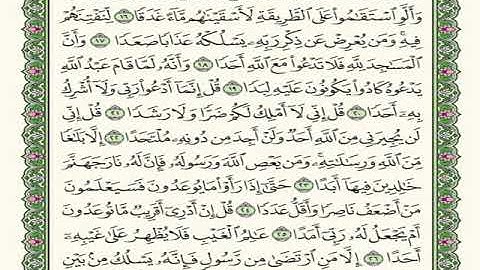 وَأَلَّوِ ٱسْتَقَٰمُوا۟ عَلَى ٱلطَّرِيقَةِ لَأَسْقَيْنَٰهُم مَّآءً غَدَقًا ١٦ لِّنَفْتِنَهُمْ
فِيهِ ۚ وَمَن يُعْرِضْ عَن ذِكْرِ رَبِّهِۦ يَسْلُكْهُ عَذَابًا صَعَدًا ١٧ وَأَنَّ
ٱلْمَسَٰجِدَ لِلَّهِ فَلَا تَدْعُوا۟ مَعَ ٱللَّهِ أَحَدًا ١٨ وَأَنَّهُۥ لَمَّا قَامَ عَبْدُ ٱللَّهِ
يَدْعُوهُ كَادُوا۟ يَكُونُونَ عَلَيْهِ لِبَدًا ١٩ قُلْ إِنَّمَآ أَدْعُوا۟ رَبِّى وَلَآ أُشْرِكُ
بِهِۦٓ أَحَدًا ٢٠ قُلْ إِنِّى لَآ أَمْلِكُ لَكُمْ ضَرًّا وَلَا رَشَدًا ٢١ قُلْ إِنِّى
لَن يُجِيرَنِى مِنَ ٱللَّهِ أَحَدٌ وَلَنْ أَجِدَ مِن دُونِهِۦ مُلْتَحَدًا ٢٢ إِلَّا بَلَٰغًا
مِّنَ ٱللَّهِ وَرِسَٰلَٰتِهِۦ ۚ وَمَن يَعْصِ ٱللَّهَ وَرَسُولَهُۥ فَإِنَّ لَهُۥ نَارَ جَهَنَّمَ
خَٰلِدِينَ فِيهَآ أَبَدًا ٢٣ حَتَّىٰٓ إِذَا رَأَوْا۟ مَا يُوعَدُونَ فَسَيَعْلَمُونَ
مَنْ أَضْعَفُ نَاصِرًا وَأَقَلُّ عَدَدًا ٢٤ قُلْ إِنْ أَدْرِىٓ أَقَرِيبٌ مَّا تُوعَدُونَ
أَمْ يَجْعَلُ لَهُۥ رَبِّىٓ أَمَدًا ٢٥ عَٰلِمُ ٱلْغَيْبِ فَلَا يُظْهِرُ عَلَىٰ غَيْبِهِۦٓ
أَحَدًا ٢٦ إِلَّا مَنِ ٱرْتَضَىٰ مِن رَّسُولٍ فَإِنَّهُۥ يَسْلُكُ مِنۢ بَيْنِ